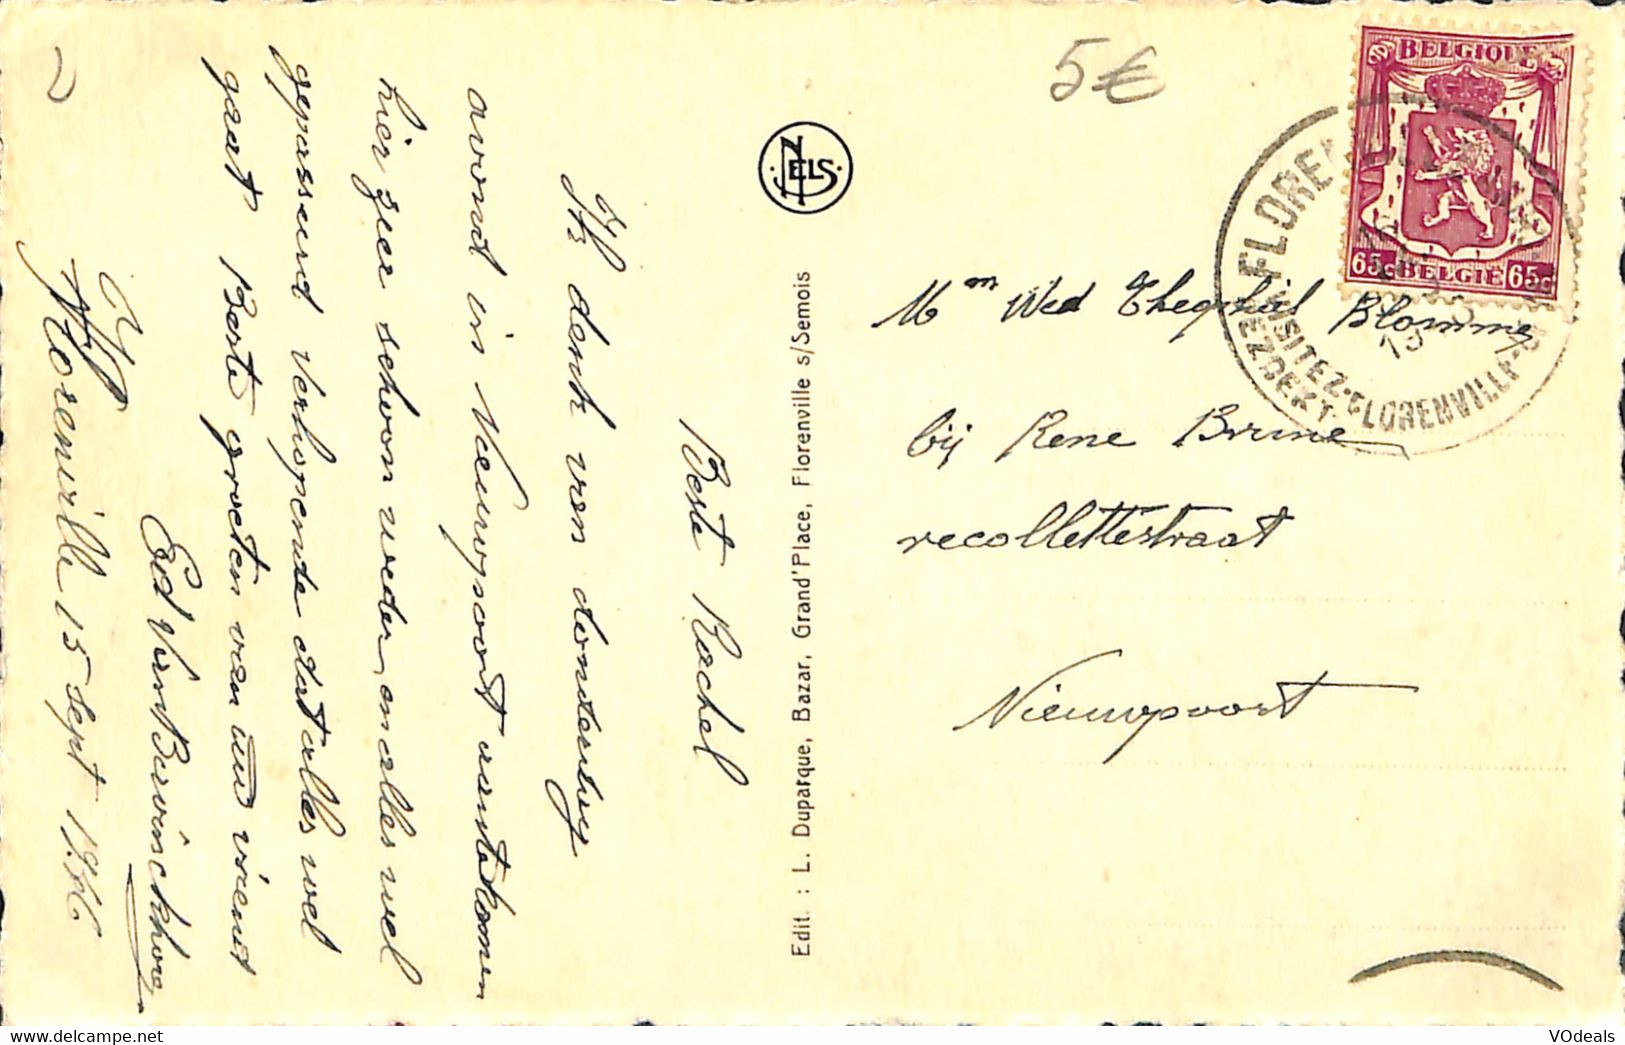 Beste Rachel
Ik denk van donderdag
avond in Nieuwpoort aantekomen
hier zeer schoon weder en alles wel
gepasseerd verhopende dat alles wel
gaat Berte groeten van uw vriend
Ed Van Bervinckhove
Florenville 15 sept
5€
NELS
Edit. : L. Duparque, Bazar, Grand'Place, Florenville s/Semois
BELGIQUE
65c BELGIË 65c
FLOREN
VISITEZ·FLORENVILLE
BEZOEKT
Mm Wed Theophiel Blomme
bij Rene Brune
recollettestraat
Nieuwpoort
VOdeals